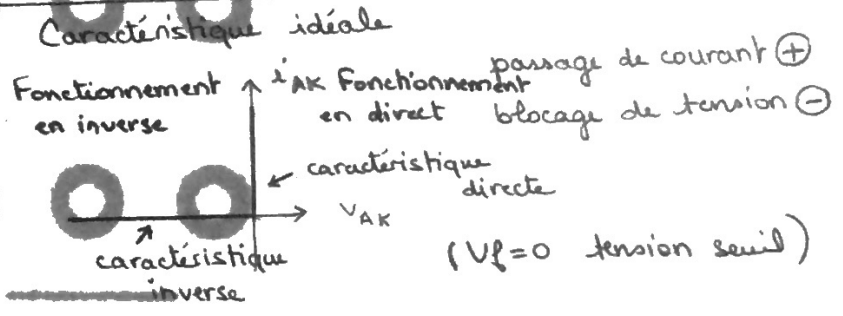 Caractéristique idéale
Fonctionnement
en inverse
iAK Fonctionnement
en direct
passage de courant ⊕
blocage de tension ⊖
caractéristique
directe
VAK
caractéristique
inverse
(Vf=0 tension seuil)